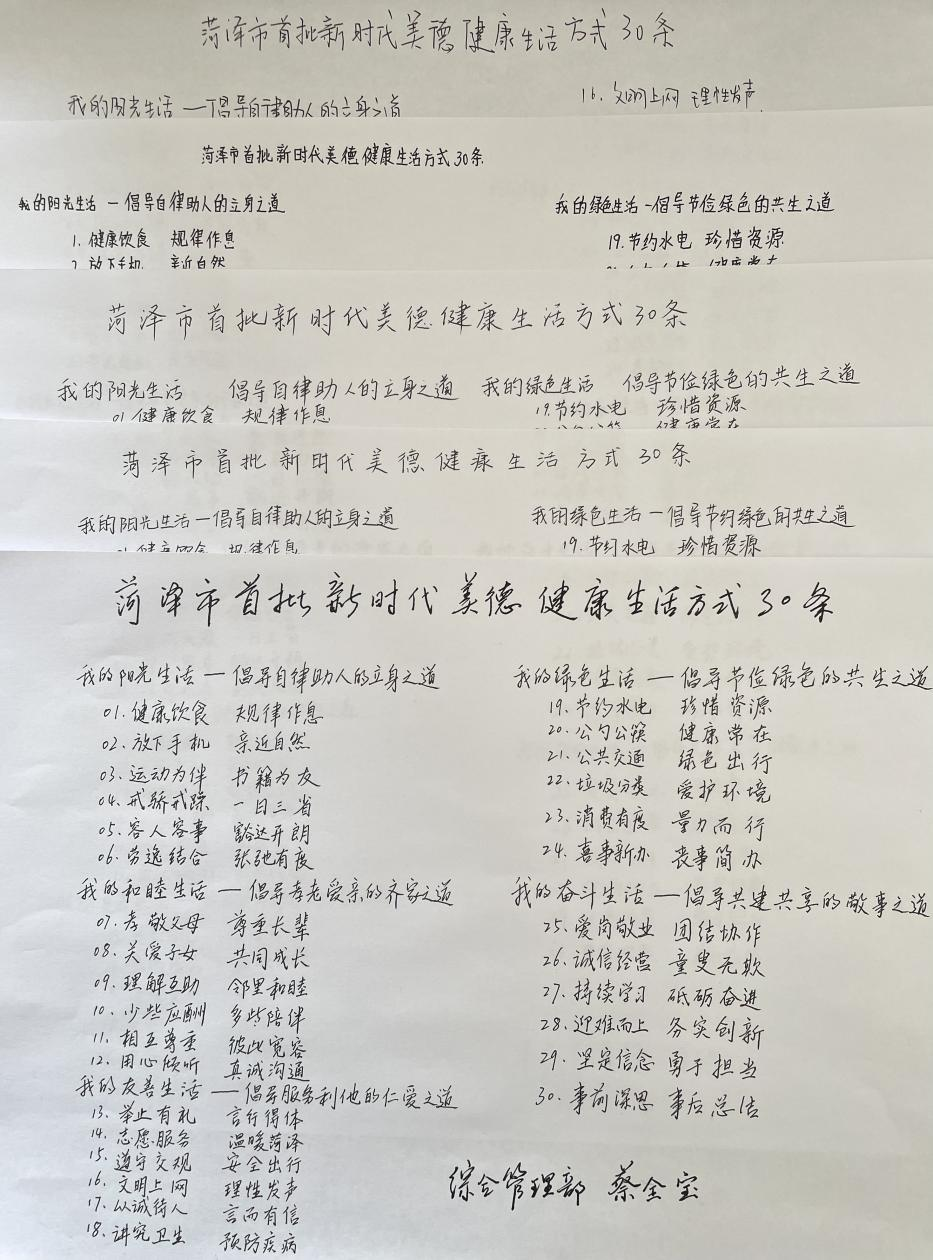 菏泽市首批新时代美德健康生活方式30条
我的阳光生活 一倡导自律助人的立身之道
16. 文明上网 理性发声
菏泽市首批新时代美德健康生活方式30条
我的阳光生活 一倡导自律助人的立身之道
1. 健康饮食 规律作息
2. 放下手机 亲近自然
我的绿色生活 一倡导节俭绿色的共生之道
19. 节约水电 珍惜资源
菏泽市首批新时代美德健康生活方式30条
我的阳光生活 倡导自律助人的立身之道
01 健康饮食 规律作息
我的绿色生活 倡导节俭绿色的共生之道
19. 节约水电 珍惜资源
菏泽市首批新时代美德健康生活方式30条
我的阳光生活一倡导自律助人的立身之道
我的绿色生活一倡导节约绿色的共生之道
19. 节约水电 珍惜资源
菏泽市首批新时代美德健康生活方式30条
我的阳光生活 一倡导自律助人的立身之道
01. 健康饮食 规律作息
02. 放下手机 亲近自然
03. 运动为伴 书籍为友
04. 戒骄戒躁 一日三省
05. 容人容事 豁达开朗
06. 劳逸结合 张弛有度
我的和睦生活 一倡导孝老爱亲的齐家之道
07. 孝敬父母 尊重长辈
08. 关爱子女 共同成长
09. 理解互助 邻里和睦
10. 少些应酬 多些陪伴
11. 相互尊重 彼此宽容
12. 用心倾听 真诚沟通
我的友善生活 一倡导服务利他的仁爱之道
13. 举止有礼 言行得体
14. 志愿服务 温暖菏泽
15. 遵守交规 安全出行
16. 文明上网 理性发声
17. 以诚待人 言而有信
18. 讲究卫生 预防疾病
我的绿色生活 一倡导节俭绿色的共生之道
19. 节约水电 珍惜资源
20. 公勺公筷 健康常在
21. 公共交通 绿色出行
22. 垃圾分类 爱护环境
23. 消费有度 量力而行
24. 喜事新办 丧事简办
我的奋斗生活 一倡导共建共享的敬事之道
25. 爱岗敬业 团结协作
26. 诚信经营 童叟无欺
27. 持续学习 砥砺奋进
28. 迎难而上 务实创新
29. 坚定信念 勇于担当
30. 事前深思 事后总结
综合管理部 蔡全宝